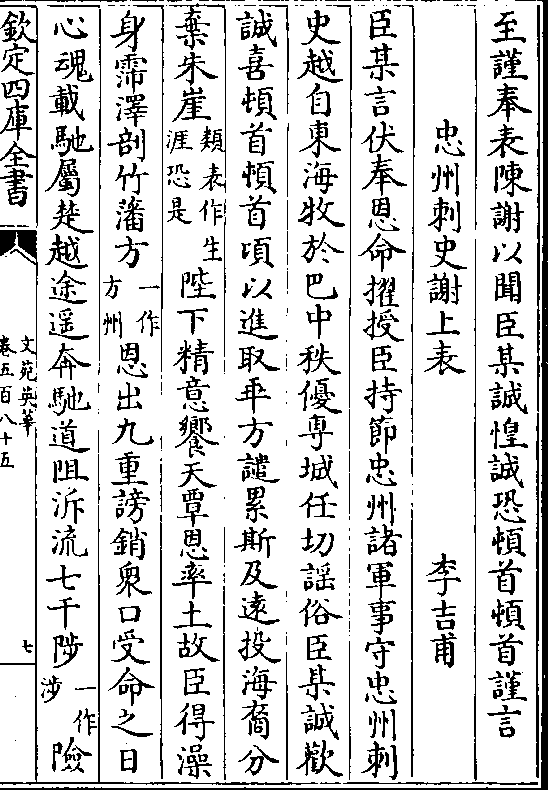 至謹奉表陳謝以聞臣某誠惶誠恐頓首頓首謹言
忠州刺史謝上表　李吉甫
臣某言伏奉恩命擢授臣持節忠州諸軍事守忠州刺
史越自東海牧於巴中秩優専城任切謡俗臣某誠歡
誠喜頓首頓首項以進取乖方譴累斯及遠投海裔分
棄朱崖類表作生涯恐是陛下精意饗天覃恩率土故臣得澡
身霈澤剖竹藩方一作方州恩出九重謗銷衆口受命之日
心魂載馳屬楚越途遥奔馳道阻泝流七千陟一作涉險
欽定四庫全書
文苑英華
卷五百八十五
七